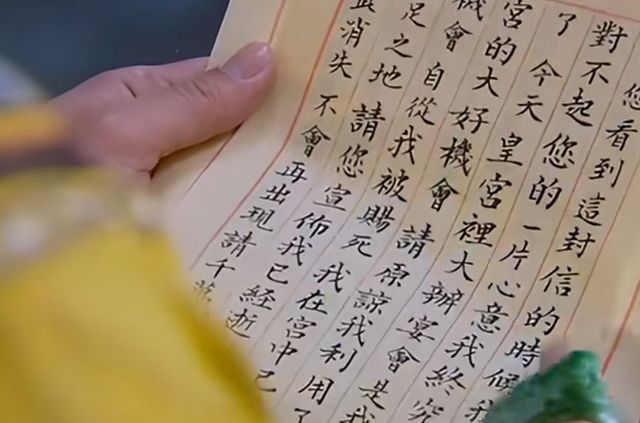 您看到這封信的時候我
對不起您的一片心意我終究
了今天皇宮裡大辦宴會是我
宮的大好機會請原諒我利用了
機會自從我被賜死我在宮中已
足之地請您宣佈我已經逝
消失不會再出現請千